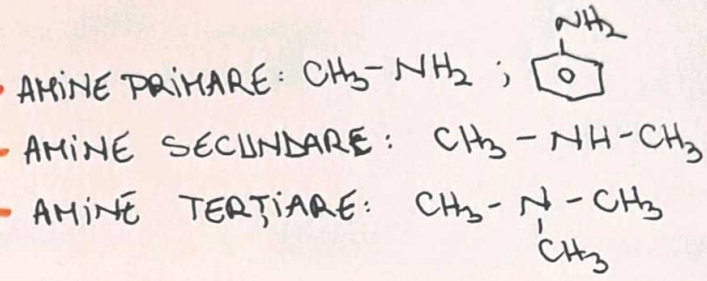 NH₂
- AMINE PRIMARE: CH₃-NH₂ ;
- AMINE SECUNDARE: CH₃-NH-CH₃
- AMINE TERȚIARE: CH₃-N-CH₃
CH₃